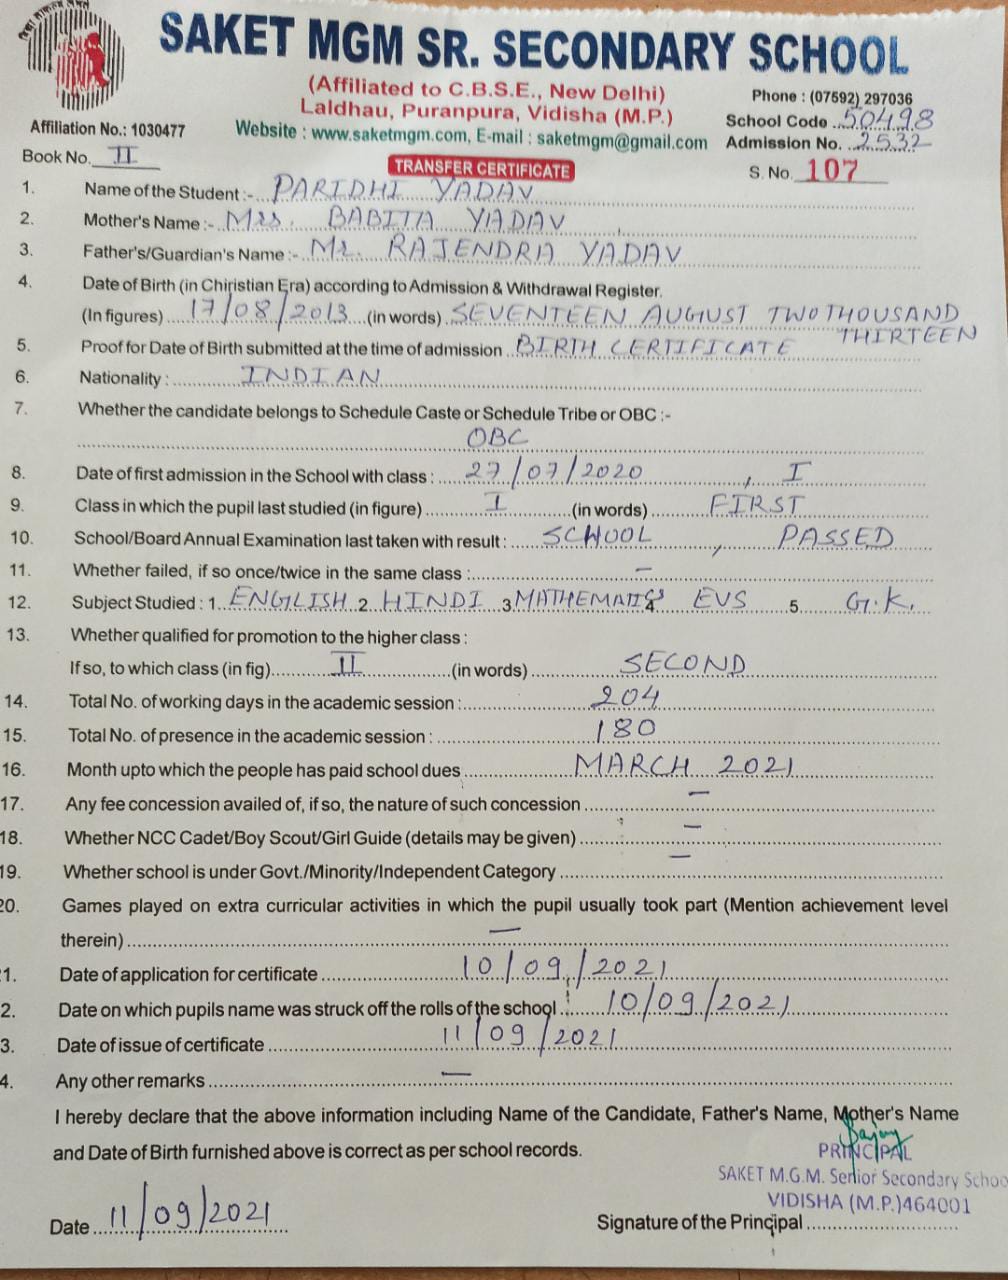 SAKET MGM SR. SECONDARY SCHOOL
(Affiliated to C.B.S.E., New Delhi)
Laldhau, Puranpura, Vidisha (M.P.)
Phone : (07592) 297036
Affiliation No.: 1030477
Website : www.saketmgm.com, E-mail : saketmgm@gmail.com
School Code 50498
Admission No. 2532
Book No. II
TRANSFER CERTIFICATE
S. No. 107
1. Name of the Student :- PARIDHI YADAV
2. Mother's Name :- Mrs. BABITA YADAV
3. Father's/Guardian's Name :- Mr. RAJENDRA YADAV
4. Date of Birth (in Chiristian Era) according to Admission & Withdrawal Register.
(In figures) 17/08/2013 (in words) SEVENTEEN AUGUST TWO THOUSAND
THIRTEEN
5. Proof for Date of Birth submitted at the time of admission BIRTH CERTIFICATE
6. Nationality : INDIAN
7. Whether the candidate belongs to Schedule Caste or Schedule Tribe or OBC :-
OBC
8. Date of first admission in the School with class : 27/07/2020, I
9. Class in which the pupil last studied (in figure) I (in words) FIRST
10. School/Board Annual Examination last taken with result : SCHOOL, PASSED
11. Whether failed, if so once/twice in the same class : –
12. Subject Studied : 1. ENGLISH 2. HINDI 3. MATHEMATICS 4. EVS 5. G.K.
13. Whether qualified for promotion to the higher class :
If so, to which class (in fig) II (in words) SECOND
14. Total No. of working days in the academic session : 204
15. Total No. of presence in the academic session : 180
16. Month upto which the people has paid school dues MARCH 2021
17. Any fee concession availed of, if so, the nature of such concession –
18. Whether NCC Cadet/Boy Scout/Girl Guide (details may be given) –
19. Whether school is under Govt./Minority/Independent Category –
20. Games played on extra curricular activities in which the pupil usually took part (Mention achievement level
therein) –
1. Date of application for certificate 10/09/2021
2. Date on which pupils name was struck off the rolls of the school 10/09/2021
3. Date of issue of certificate 11/09/2021
4. Any other remarks –
I hereby declare that the above information including Name of the Candidate, Father's Name, Mother's Name
and Date of Birth furnished above is correct as per school records.
PRINCIPAL
SAKET M.G.M. Senior Secondary Schoo
VIDISHA (M.P.)464001
Date 11/09/2021
Signature of the Principal